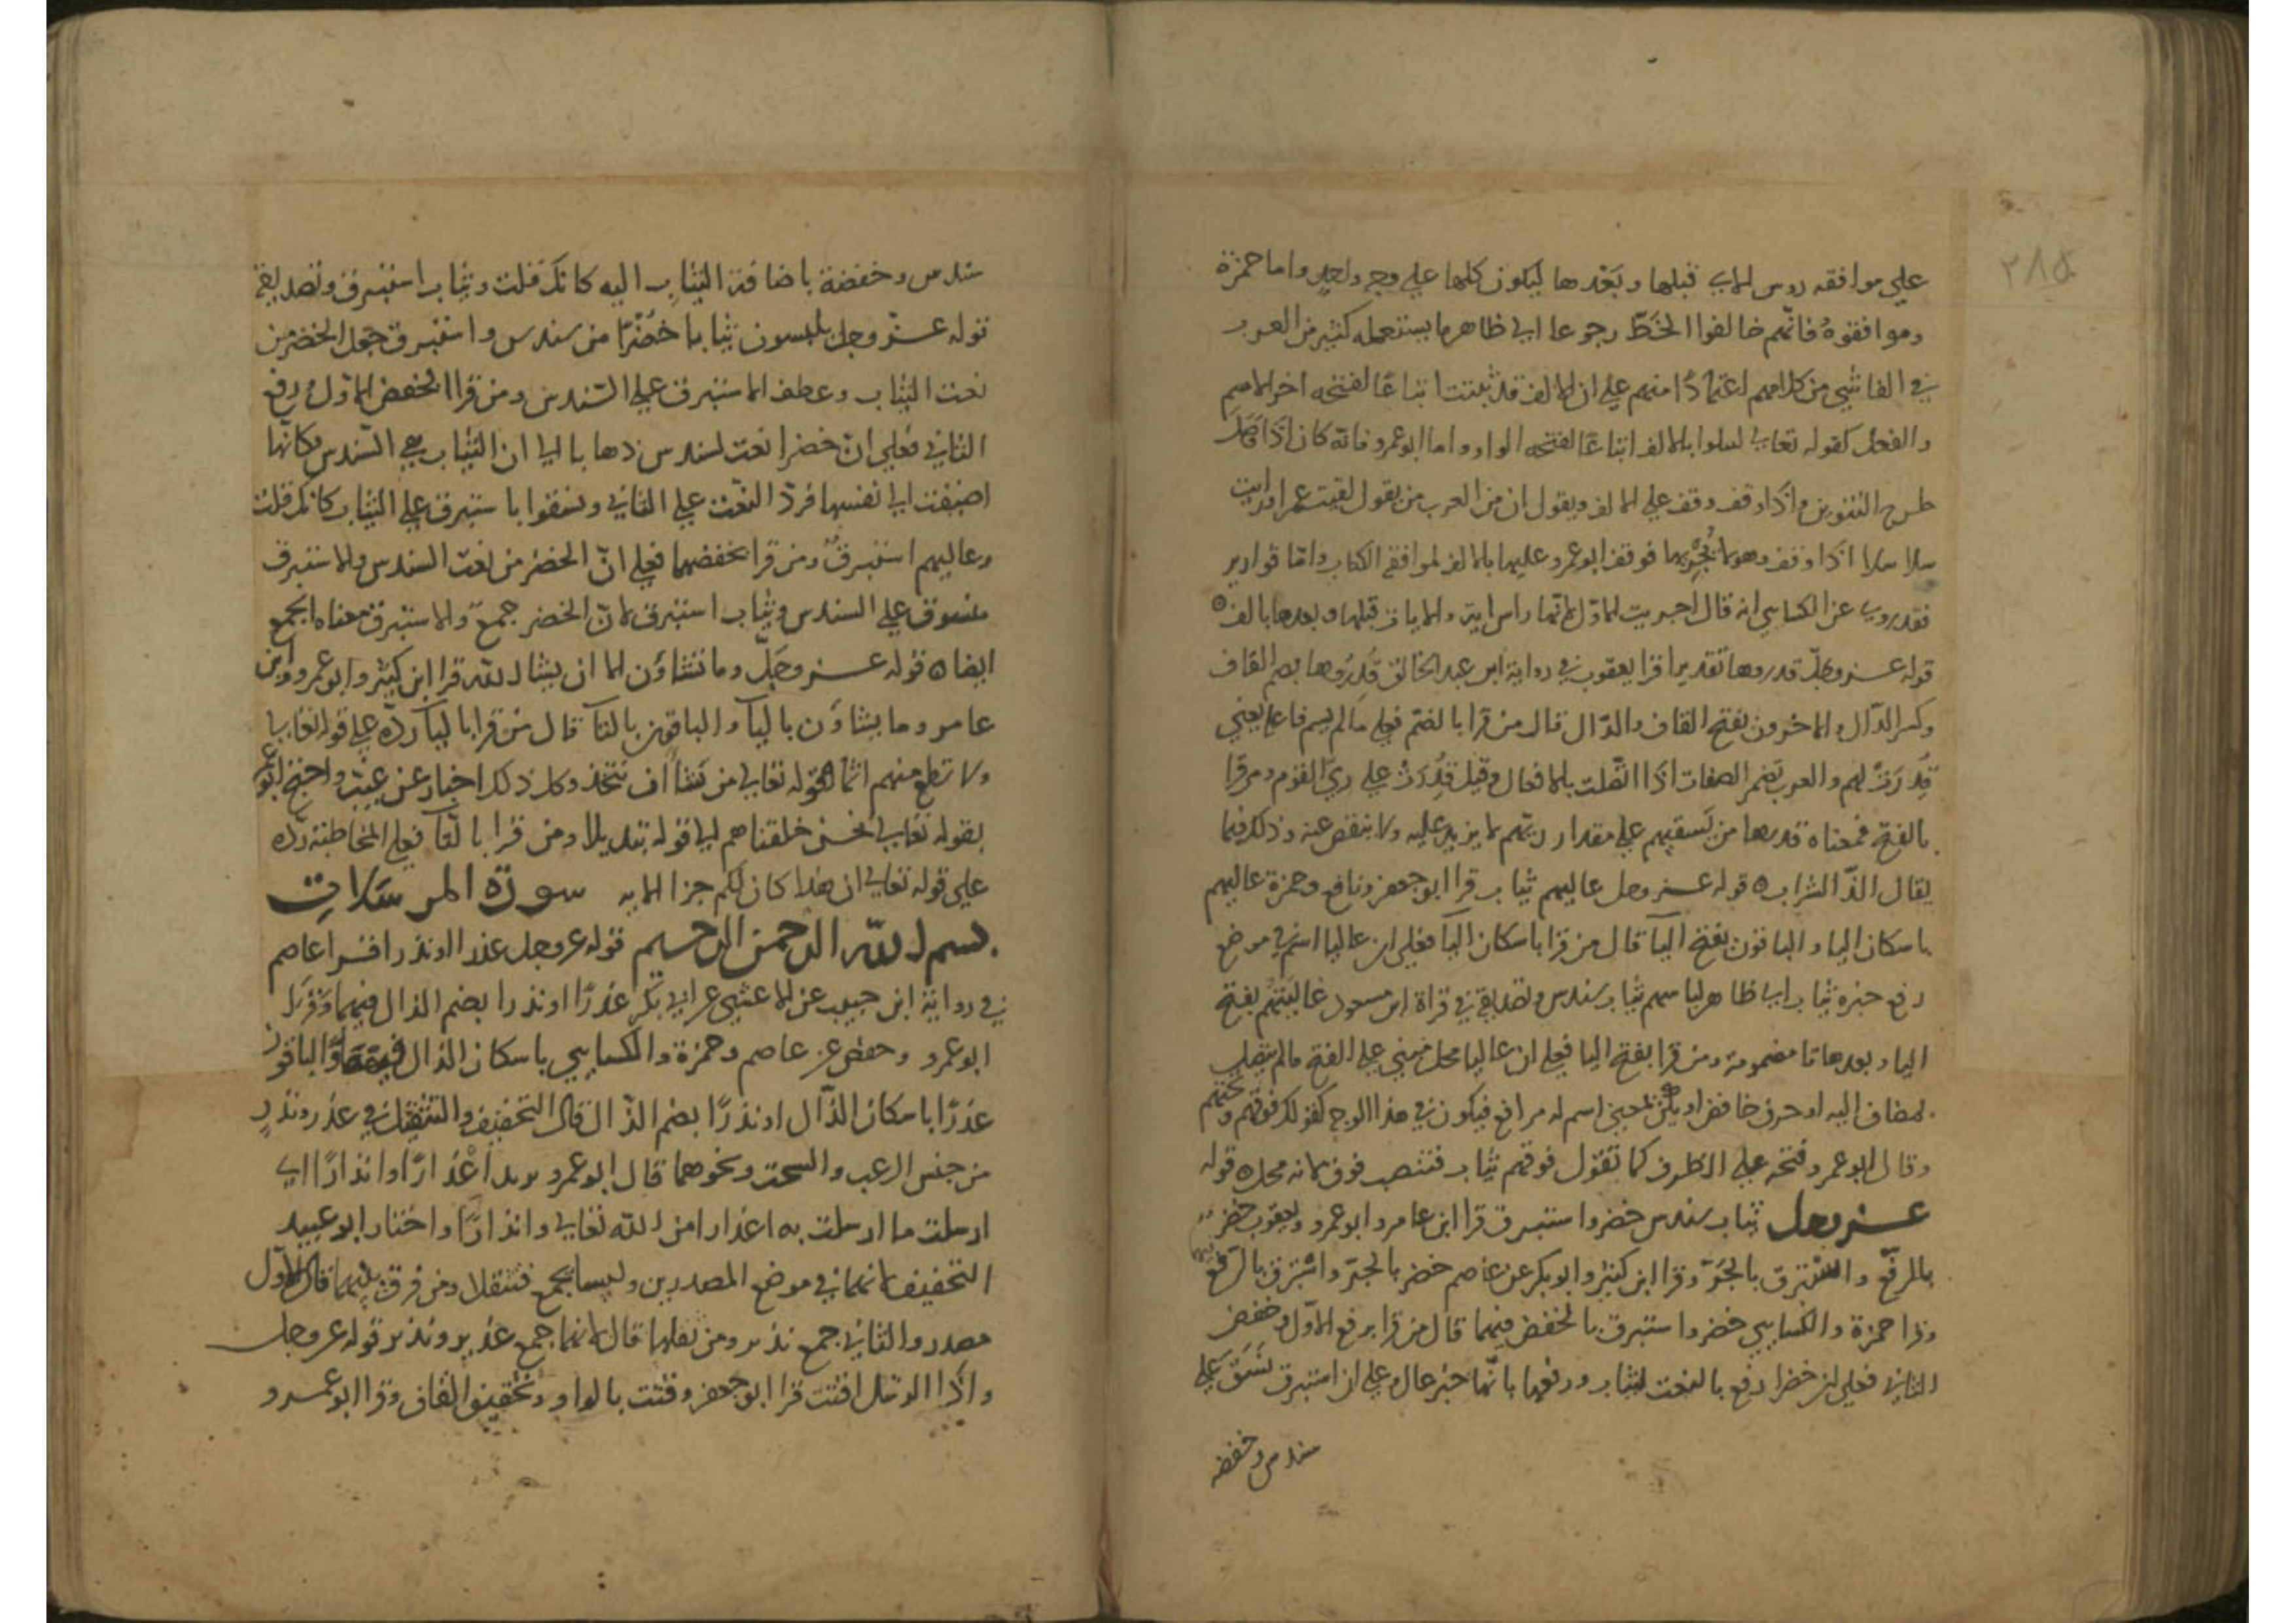 ٢٨٥
على موافقه روس الاي قبلها وبعدها ليكون كلها على وجه واحد واما حمزة
وموافقوه فانهم خالفوا الخط رجوعا الى ظاهر ما يستعمله كثير من العرب
في الفاشي من كلامهم اعتمادا منهم على ان الالف قد ثبتت اتباعا لفتحه اخر الاسم
والفعل كقوله تعالى لسلوا بالالف اتباعا لفتحه الواو واما ابو عمرو فانه كان اذا وصل
طرح التنوين واذا وقف وقف على الالف ويقول ان من العرب من يقول لقيت عمرا ورايت
سلاسلا اذا وقف وهو لا يجريها فوقف ابو عمرو عليها بالالف لموافقة الكتاب واما قوارير
فقد روي عن الكسايي انه قال اجريت الاول لانها راس اية والايات قبلها وبعدها بالف ه
قوله عز وجل قدروها تقديرا قرا يعقوب في رواية ابن عبد الخالق قدروها بضم القاف
وكسر الدال والاخرون بفتح القاف والدال قال من قرا بالضم فعلى مالم يسم فاعله يعني
قدرت لهم والعرب تضمر الصفات اذا اتصلت بالافعال وقيل قدرت على ري القوم ومن قرا
بالفتح فمعناه قدرها من يسقيهم على مقدار ريهم لا يزيد عليه ولا ينقص عنه وذلك فيما
يقال الذ الشراب ه قوله عز وجل عاليهم ثياب قرا ابو جعفر ونافع وحمزة عاليهم
باسكان اليا والباقون بفتح اليا قال من قرا باسكان اليا فعلى ان عاليا اسم في موضع
رفع خبره ثياب اي ظاهر لباسهم ثياب سندس وتصديقه في قراة ابن مسعود عاليتهم بفتح
اليا وبعدها تا مضمومة ومن قرا بفتح اليا فعلى ان عاليا محل مبني على الفتح مالم يتصل به
لمضاف اليه او حرف خافض او يكن بمعنى اسم له مرافع فيكون في هذا الوجه كقولك فوقهم وتحتهم
وقال ابو عمرو فتحه على الظرف كما تقول فوقهم ثياب فتنصب فوق لانه محل ه قوله
عز وجل ثياب سندس خضر واستبرق قرا ابن عامر وابو عمرو ويعقوب خضر
بالرفع واستبرق بالجر وقرا ابن كثير وابو بكر عن عاصم خضر بالجر واستبرق بالرفع
وقرا حمزة والكسايي خضر واستبرق بالخفض فيهما قال من قرا برفع الاول وخفض
الثاني فعلى ان خضرا رفع بالنعت لثياب ورفعها بانها خبر عال وعلى ان استبرق نسق على
سندس وخفضه
سندس وخفضه باضافة الثياب اليه كانك قلت وثياب استبرق وتصديقه
قوله عز وجل يلبسون ثيابا خضرا من سندس واستبرق جعل الخضر من
نعت الثياب وعطف الاستبرق على السندس ومن قرا الخفض الاول ورفع
الثاني فعلى ان خضرا نعت لسندس ذهابا الى ان الثياب هي السندس وكانها
اضيفت الى نفسها فرد النعت على الثاني ونسقوا باستبرق على الثياب كانك قلت
وعاليهم استبرق ومن قرا بخفضهما فعلى ان الخضر من نعت السندس والاستبرق
منسوق على السندس وثياب استبرق لان الخضر جمع والاستبرق معناه الجمع
ايضا ه قوله عز وجل وما تشاون الا ان يشا الله قرا ابن كثير وابو عمرو وابن
عامر وما يشاون باليا والباقون بالتا قال من قرا باليا رده على قوله تعالى
ولا تطع منهم اثما لقوله تعالى من شا اتخذ وكل ذلك اخبار عن غيب واحتج ابو عمرو
بقوله تعالى نحن خلقناهم الى قوله تبديلا ومن قرا بالتا فعلى المخاطبة رده
على قوله تعالى ان هذا كان لكم جزا الايه سورة المرسلات
بسم الله الرحمن الرحيم قوله عز وجل عذرا او نذرا قرا عاصم
في رواية ابن حبيب عن الاعشي عن ابي بكر عذرا او نذرا بضم الذال فيهما وقرا
ابو عمرو وحفص عن عاصم وحمزة والكسايي باسكان الذال فيهما والباقون
عذرا باسكان الذال او نذرا بضم الذال قال التخفيف والتثقيل في عذر ونذر
من جنس الرعب والسحت ونحوهما قال ابو عمرو يريد اعذارا وانذارا اي
ارسلت ما ارسلت به اعذارا من الله تعالى وانذارا واختار ابو عبيد
التخفيف لانهما في موضع المصدرين وليسا بجمع فتثقلا ومن فرق بينهما قال الاول
مصدر والثاني جمع نذير ومن ثقلهما قال لانهما جمع عذير ونذير قوله عز وجل
واذا الرسل اقتت قرا ابو جعفر وقتت بالواو وتخفيف القاف وقرا ابو عمرو